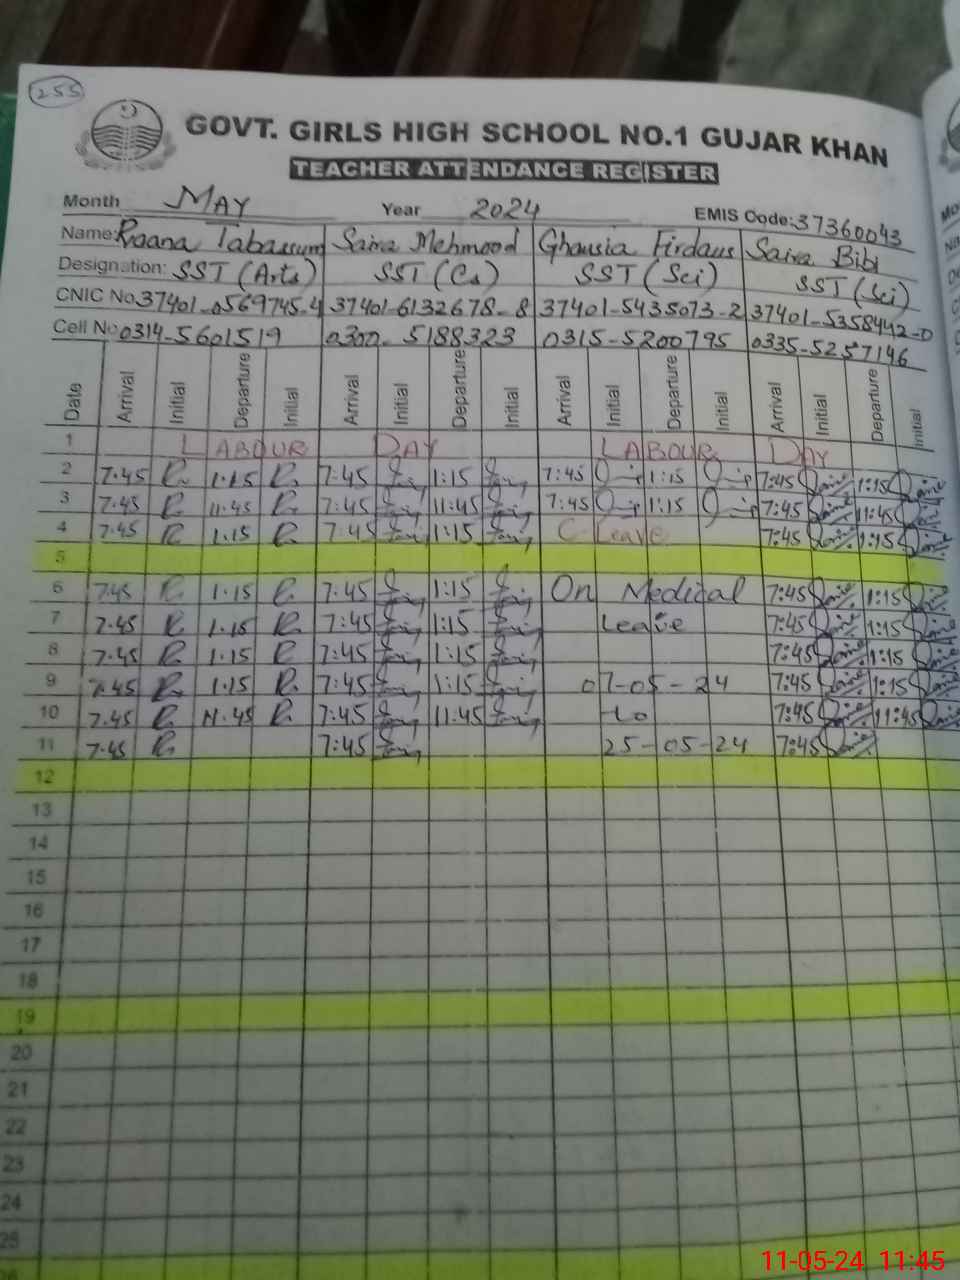 255
GOVT. GIRLS HIGH SCHOOL NO.1 GUJAR KHAN
TEACHER ATTENDANCE REGISTER
Month MAY Year 2024 EMIS Code: 37360043
Name: Raana Tabassum Saira Mehmood Ghausia Firdaus Saira Bibi
Designation: SST (Arts) SST (Cs) SST (Sci) SST (Sci)
CNIC No. 37401-0569745-4 37401-6132678-8 37401-5435073-2 37401-5358442-0
Cell No: 0314-5601519 0300-5188323 0315-5200795 0335-5257146
Date Arrival Initial Departure Initial Arrival Initial Departure Initial Arrival Initial Departure Initial Arrival Initial Departure Initial
1 LABOUR DAY LABOUR DAY
2 7.45 R 1.15 R 7:45 1:15 7:45 1:15 7:45 1:15
3 7.45 R 11.45 R 7:45 11:45 7:45 1:15 7:45 11:45
4 7.45 R 1.15 R 7:45 1:15 C-Leave 7:45 1:15
5
6 7.45 R 1.15 R 7:45 1:15 On Medical 7:45 1:15
7 7.45 R 1.15 R 7:45 1:15 Leave 7:45 1:15
8 7.45 R 1.15 R 7:45 1:15 7:45 1:15
9 7.45 R 1.15 R 7:45 1:15 07-05-24 7:45 1:15
10 7.45 R 11.45 R 7:45 11:45 to 7:45 11:45
11 7.45 R 7:45 25-05-24 7:45
12
13
14
15
16
17
18
19
20
21
22
23
24
25
26
11-05-24 11:45